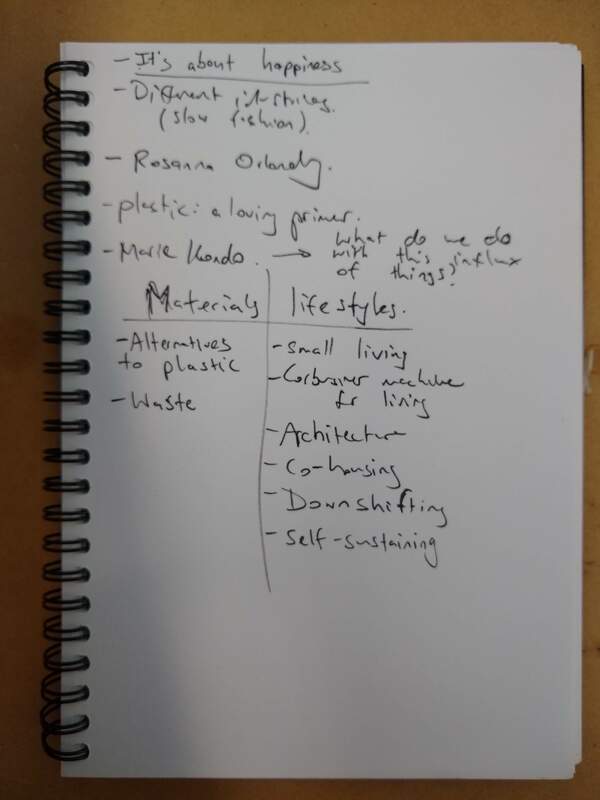 - It's about happiness
- Different industries.
(slow fashion).
- Rosanna Orlandy.
- plastic: a loving primer.
- Marie Kondo. → What do we do
with this influx
of things?
Materials
lifestyles.
- Alternatives
to plastic
- Waste
- small living
- Corbusier machine
for living
- Architecture
- Co-housing
- Downshifting
- Self-sustaining